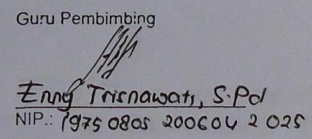 Guru Pembimbing
Enny Trisnawati, S.Pd
NIP.: 19750805 200604 2 025